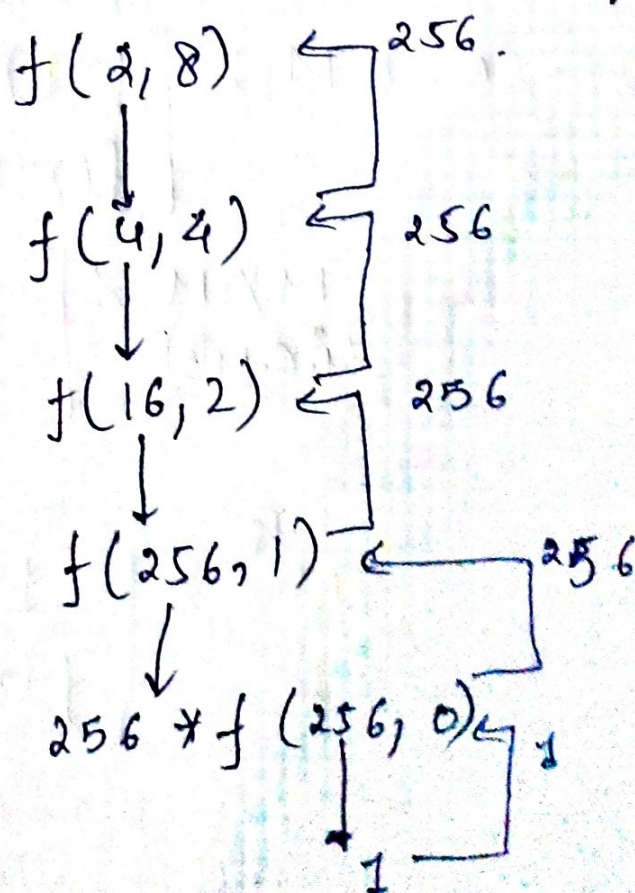 f(2, 8) 256.
f(4, 4) 256
f(16, 2) 256
f(256, 1) 256
256 * f (256, 0) 1
1